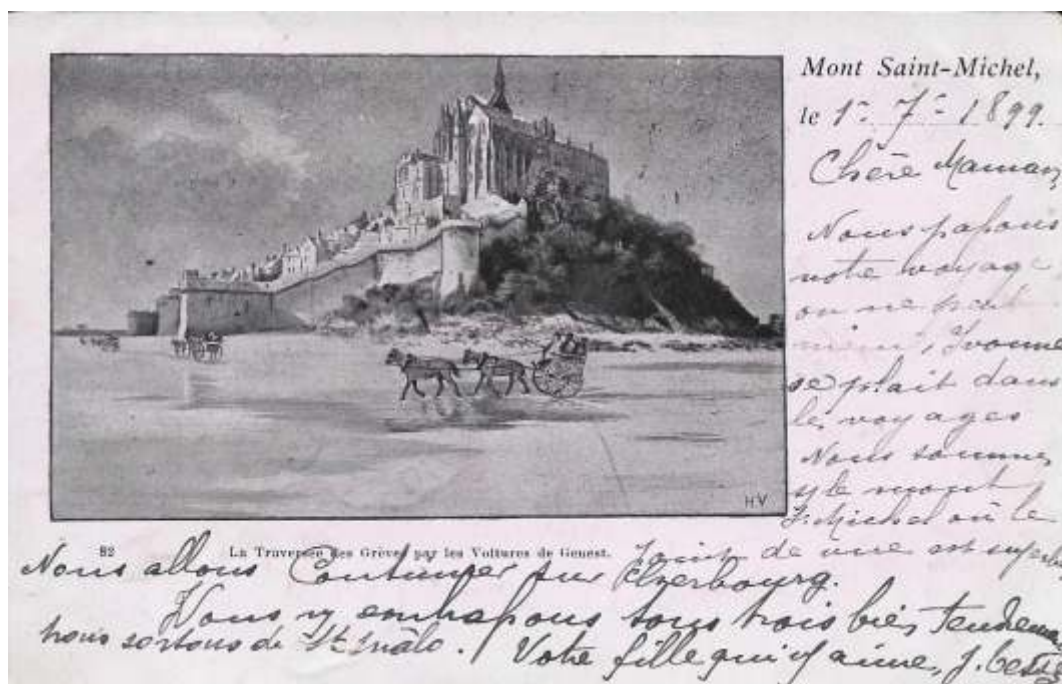 Mont Saint-Michel,
le 1er 7re 1899.
Chère Maman
Nous passons
notre voyage
on ne peut
mieux, Yvonne
se plait dans
les voyages
Nous sommes
le mont
St Michel où le
point de vue est superbe
HV
82 La Traversée des Grèves par les Voitures de Genest.
Nous allons Continuer sur Cherbourg.
Nous embrassons tous trois bien tendrement
nous sortons de St Malo. Votre fille qui aime, J.